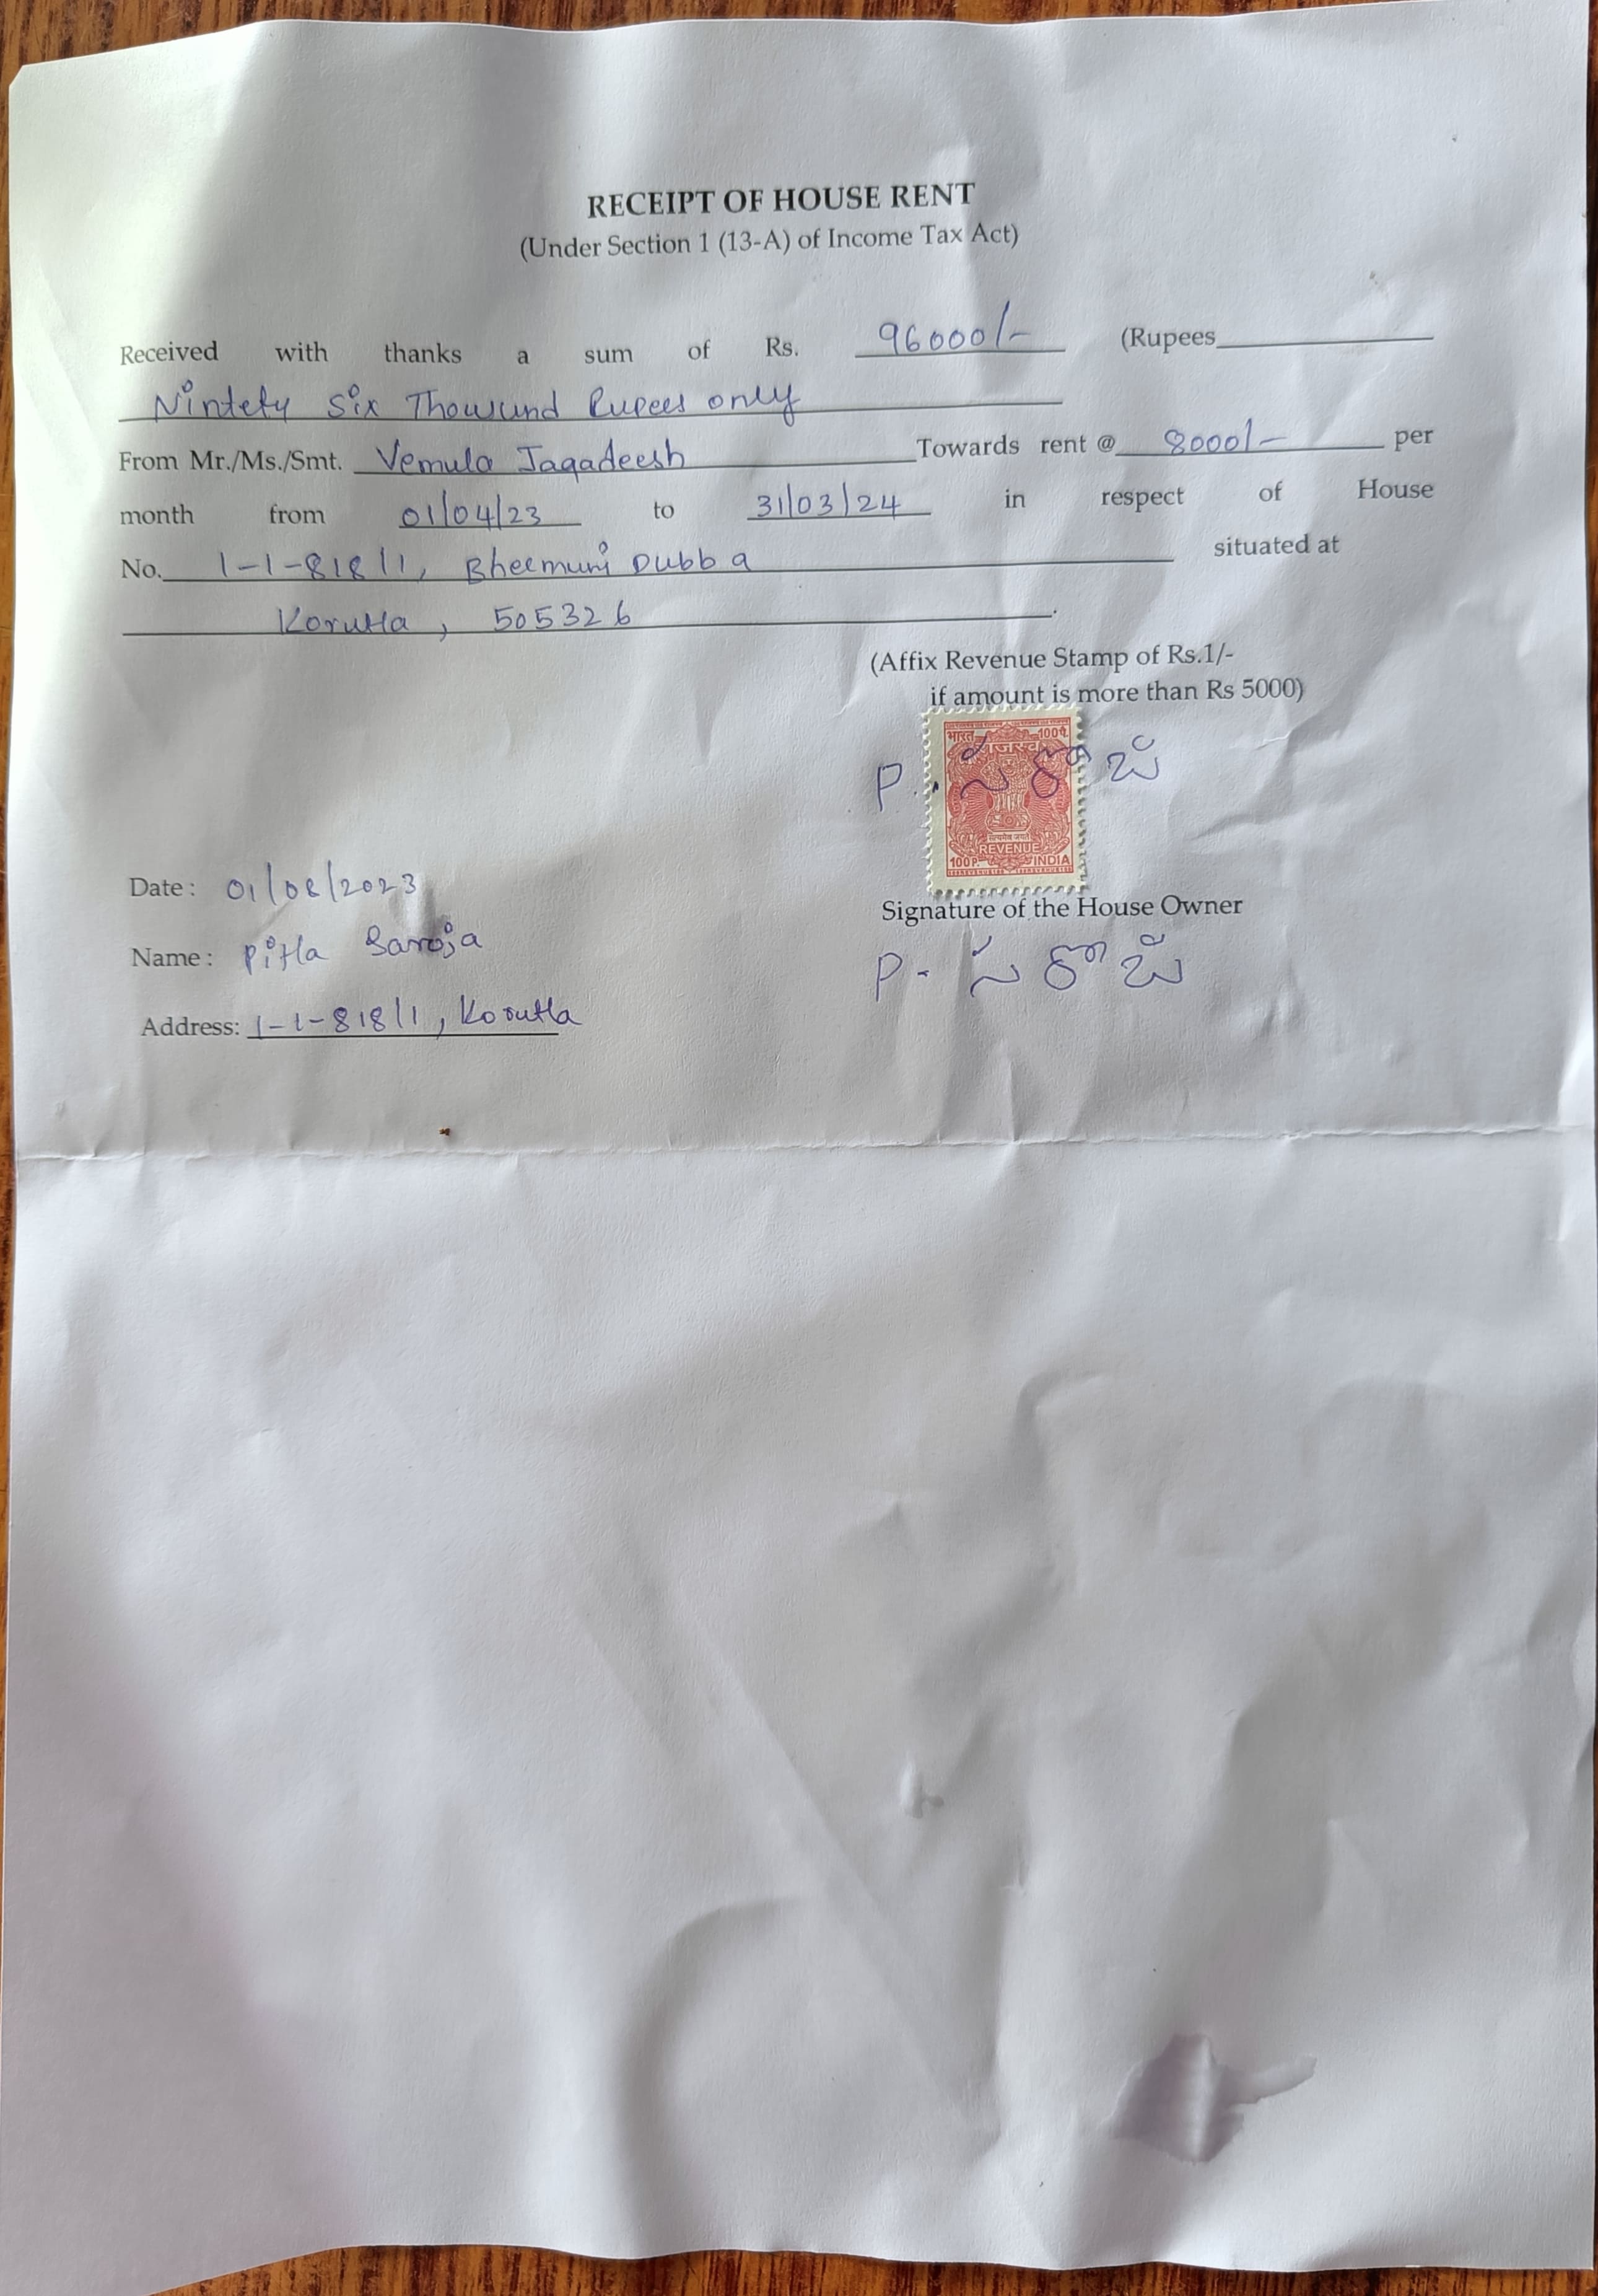 RECEIPT OF HOUSE RENT
(Under Section 1 (13-A) of Income Tax Act)
Received with thanks a sum of Rs. 96000/- (Rupees
Nintety Six Thousund Rupees only
From Mr./Ms./Smt. Vemula Jagadeesh Towards rent @ 8000/- per
month from 01/04/23 to 31/03/24 in respect of House
No. 1-1-818/1, Bheemuni Dubba situated at
Korutla, 505326.
(Affix Revenue Stamp of Rs.1/-
if amount is more than Rs 5000)
भारत 100 पै.
राजस्व
P. సరోజ
सत्यमेव जयते
REVENUE
100 P. INDIA
Date: 01/08/2023
Signature of the House Owner
Name: Pitla Saroja
P. సరోజ
Address: 1-1-818/1, Korutla